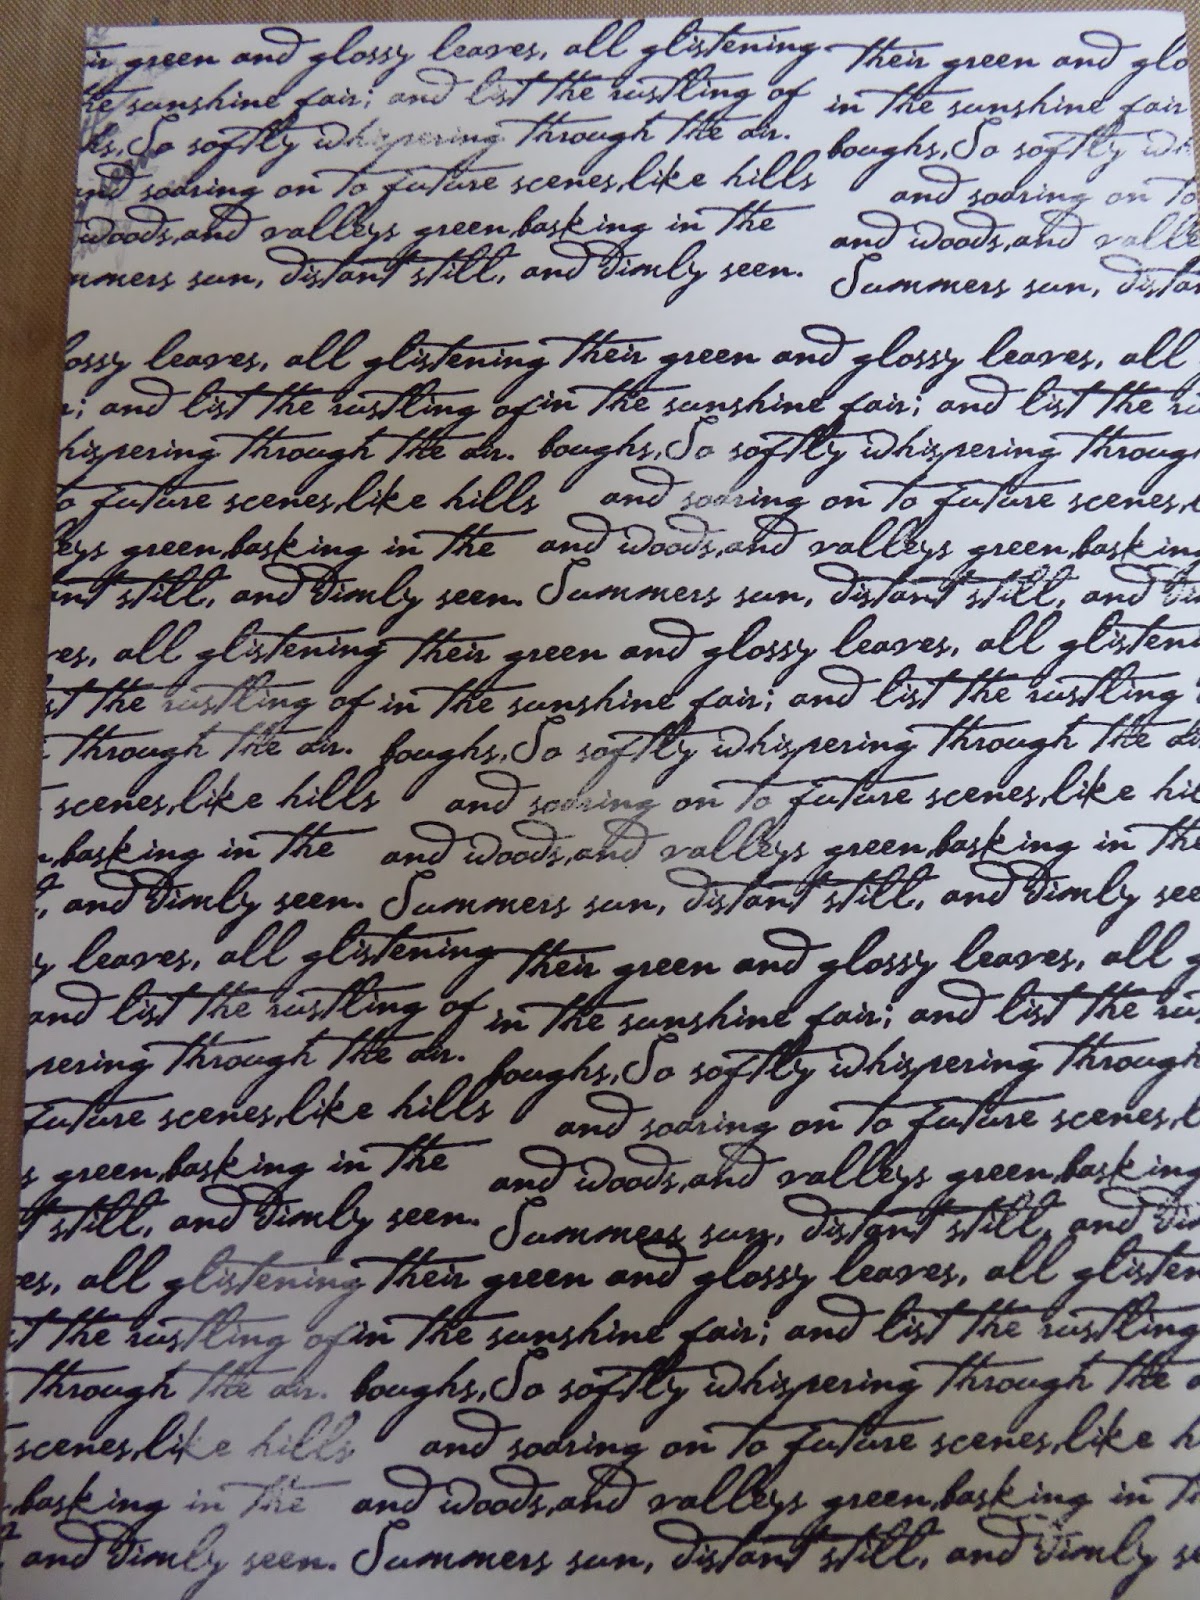 ir green and glossy leaves, all glistening their green and glo
he sunshine fair; and list the rustling of in the sunshine fair
hs, So softly whispering through the air. boughs, So softly wh
and soaring on to future scenes, like hills and soaring on to
woods, and valleys green, basking in the and woods, and valle
mmers sun, distant still, and dimly seen. Summers sun, distan
lossy leaves, all glistening their green and glossy leaves, all
r; and list the rustling of in the sunshine fair; and list the ru
hispering through the air. boughs, So softly whispering through
to future scenes, like hills and soaring on to future scenes, l
leys green, basking in the and woods, and valleys green, basking
ant still, and dimly seen. Summers sun, distant still, and di
ves, all glistening their green and glossy leaves, all glisteni
st the rustling of in the sunshine fair; and list the rustling
through the air. boughs, So softly whispering through the ai
scenes, like hills and soaring on to future scenes, like hil
n, basking in the and woods, and valleys green, basking in the
l, and dimly seen. Summers sun, distant still, and dimly see
y leaves, all glistening their green and glossy leaves, all g
and list the rustling of in the sunshine fair; and list the rus
pering through the air. boughs, So softly whispering through
future scenes, like hills and soaring on to future scenes, l
s green, basking in the and woods, and valleys green, basking
t still, and dimly seen. Summers sun, distant still, and di
es, all glistening their green and glossy leaves, all glisten
st the rustling of in the sunshine fair; and list the rustling
through the air. boughs, So softly whispering through the a
scenes, like hills and soaring on to future scenes, like h
, basking in the and woods, and valleys green, basking in t
and dimly seen. Summers sun, distant still, and dimly se